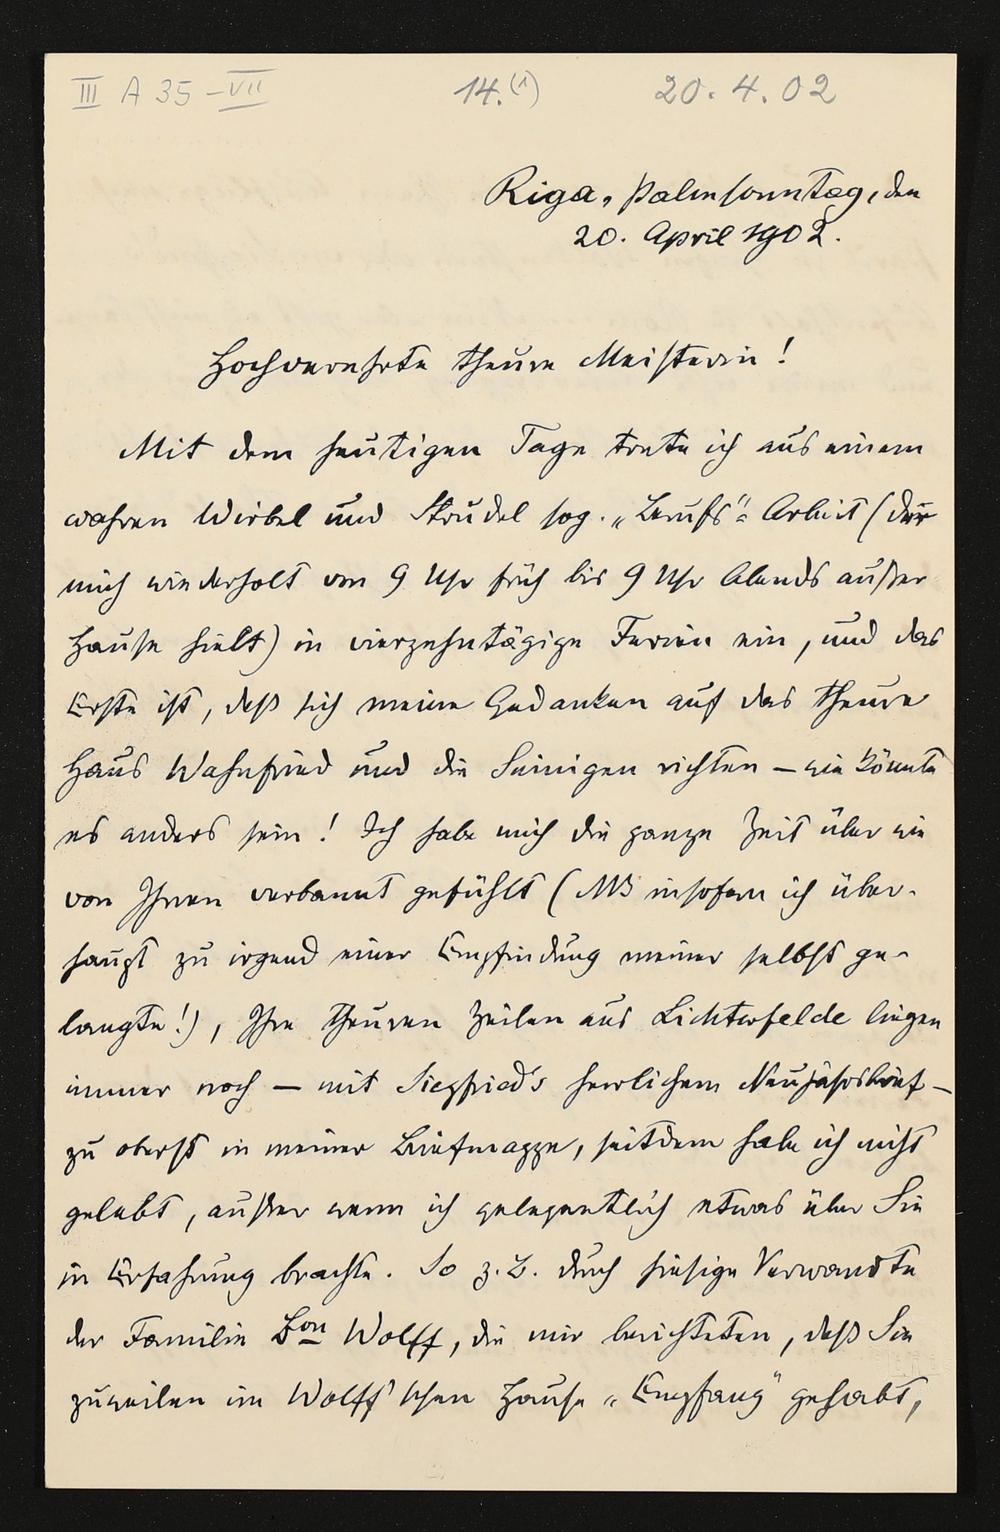 III A 35 – VII 14.(1) 20.4.02
Riga, Palmsonntag, den
20. April 1902.
Hochverehrte theure Meisterin!
Mit dem heutigen Tage trete ich aus einem
wahren Wirbel und Strudel sog. „Berufs"-Arbeit (der
mich wiederholt von 9 Uhr früh bis 9 Uhr Abends außer
Hause hielt) in vierzehntägige Ferien ein, und das
Erste ist, daß sich meine Gedanken auf das theure
Haus Wahnfried und die Seinigen richten – wie könnte
es anders sein! Ich habe mich die ganze Zeit über wie
von Ihnen verbannt gefühlt (NB insofern ich über-
haupt zu irgend einer Empfindung meiner selbst ge-
langte!), Ihre theuren Zeilen aus Lichterfelde liegen
immer noch – mit Siegfried's herrlichem Neujahrsbrief –
zu oberst in meiner Briefmappe, seitdem habe ich nicht
gelebt, außer wenn ich gelegentlich etwas über Sie
in Erfahrung brachte. So z.B. durch hiesige Verwandte
der Familie Bon Wolff, die mir berichteten, daß Sie
zuweilen im Wolff'schen Hause „Empfang" gehabt,